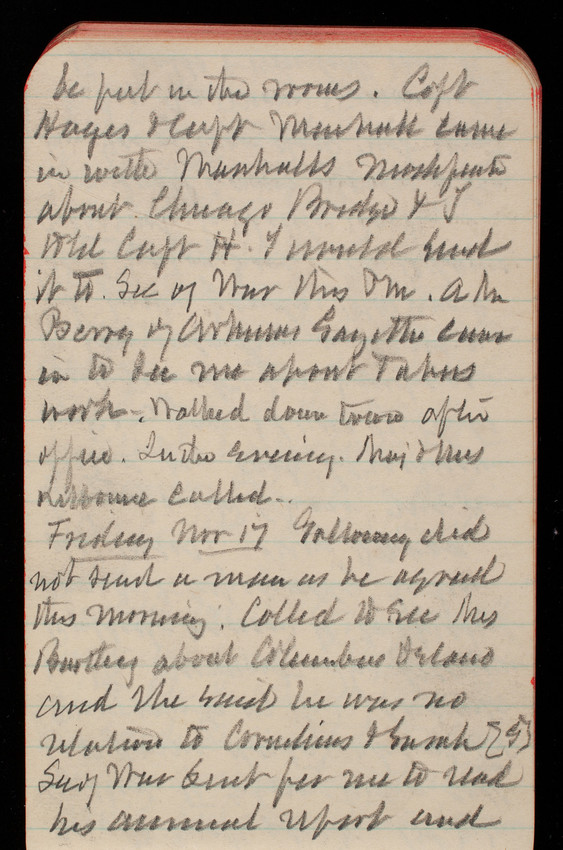 be put in the rooms. Capt
Hayes & Capt Marshall came
in with Marshalls
about Chicago Bridge & I
told Capt H. I would send
it to Sec of War this PM. A Mr
Berry of Arkansas Gazette came
in to see me about Tabers
work. Walked down town after
office. In the evening. Maj & Mrs
Kilbourne called.
Friday Nov 17 Galloway did
not send a man as he agreed
this morning. Called to see Mrs
about Columbus Deland
and she said he was no
relation to Cornelius & Sarah
Sec of War sent for me to read
his annual report and